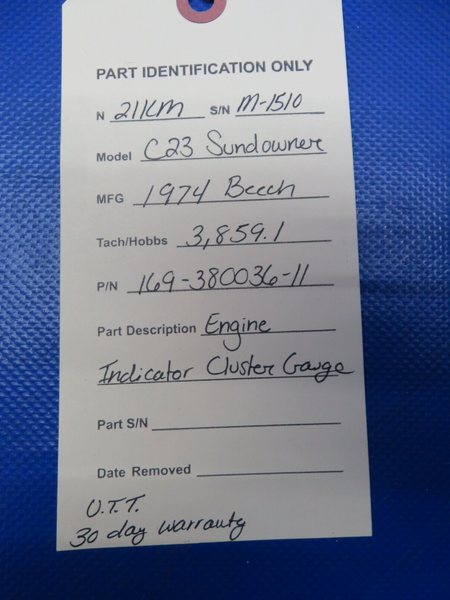 PART IDENTIFICATION ONLY
N 211KM S/N M-1510
Model C23 Sundowner
MFG 1974 Beech
Tach/Hobbs 3,859.1
P/N 169-380036-11
Part Description Engine
Indicator Cluster Gauge
Part S/N
Date Removed
U.T.T.
30 day warranty